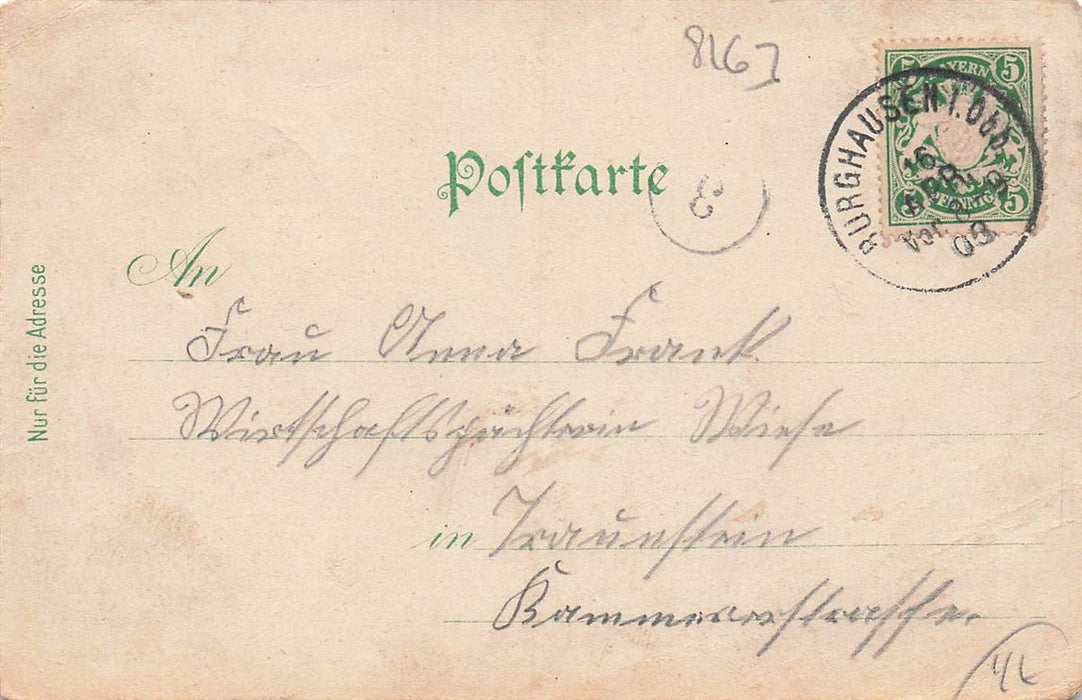 8167
5 BAYERN 5
5 PFENNIG 5
BURGHAUSEN I. Obb.
16
03
Postkarte
3
An
Nur für die Adresse
Frau Anna Frank
Wirtschaftspächterin Wiese
in Traunstein
Kammererstrasse.